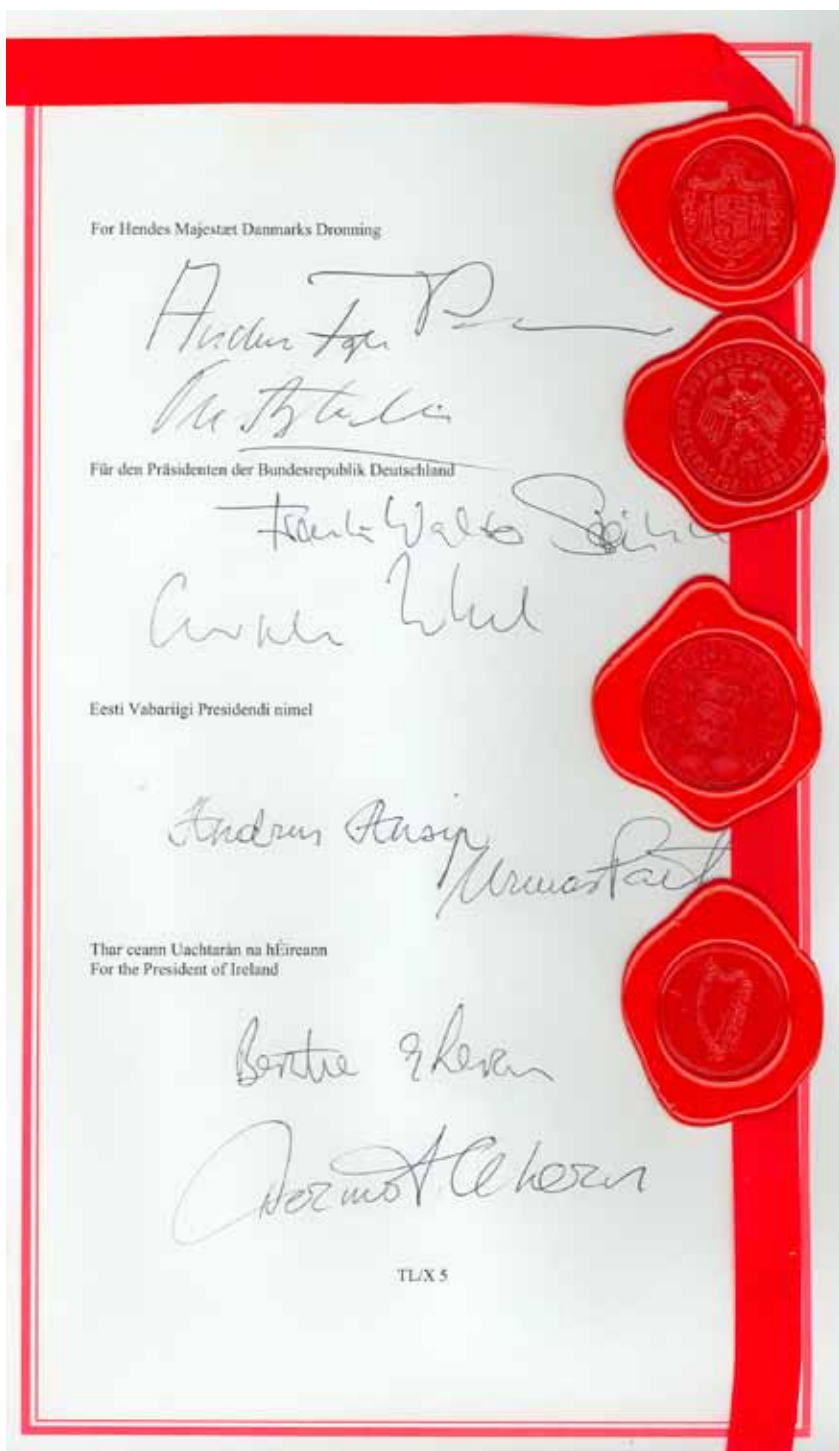 For Hendes Majestæt Danmarks Dronning
Anders Fogh R
Für den Präsidenten der Bundesrepublik Deutschland
Frank Walter
Eesti Vabariigi Presidendi nimel
Andrus Ansip
Urmas Paet
Thar ceann Uachtarán na hÉireann
For the President of Ireland
Bertie Ahern
Dermot Ahern
TL/X 5